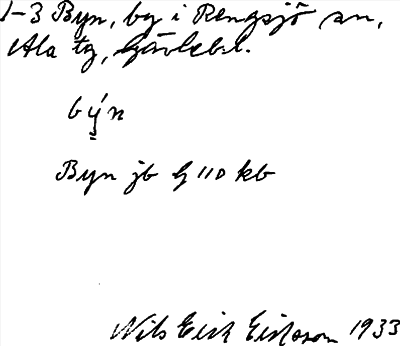 1-3 Byn, by i Rengsjö sn,
Ala tg, Gävlebl.
býn
Byn jb G 110 kb
Nils Erik Eriksson 1933